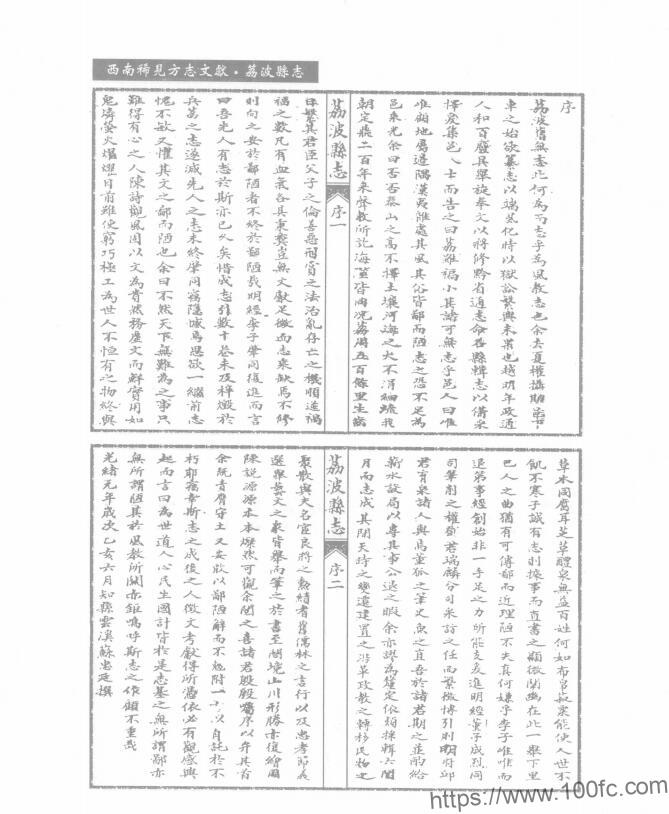 西南稀見方志文獻·荔波縣志
序
荔波舊無志此何為而志乎為風教志也余去夏權攝斯邑下
車之始欲纂志以端其化時以獄訟繁興未果也越明年政通
人和百廢具舉旋奉文以將修黔省通志命各縣輯志以備采
擇爰集邑人士而告之曰荔雖褊小其諸可無志乎邑人曰唯
唯顧地屬邊隅漢夷雜處其風其俗皆鄙而陋志之恐不足為
邑乘光余曰否否泰山之高不擇土壤河海之大不涓細流我
朝定鼎二百年來聲教所訖海澨皆同況荔周五百餘里生齒
荔波縣志
序一
日繁其君臣父子之倫善惡刑賞之法治亂存亡之機順逆禍
福之數凡有血氣各具秉彝豈無文獻足徵而志乘缺焉不修
則向之安於鄙陋者不終於鄙陋哉明經李子肇同復進而言
曰吾先人有志於斯亦已久矣惜成志引數十卷未及梓燬於
兵荔之志遂滅先人之志未終肇同竊隱憾焉思欲一繼前志
愧不敏又懼其文之鄙而陋也余曰不然天下無難為之事只
難得有心之人陳詩觀風固以文為貴然務虛文而鮮實用如
鬼燐螢火熠燿目前雖使窮巧極工為世人不恒有之物終與
草木同腐耳芝草醴泉無益百姓何如布帛菽粟能使人世不
飢不寒子誠有志則據事而直書之顯微闡幽在此一舉下里
巴人之曲猶有可傳鄙而近理陋不失真何嫌乎李子唯唯而
退第事經創始非一手足之力所能支爰進明經董子成烈同
司筆削之權鄧君瑞麟分司采訪之任而繁徵博引則明府邱
君育泉諸人與焉董狐之筆史魚之直吾於諸君期之並酌給
薪水設局以專其事公退之暇余亦謬為釐定依類採輯六閱
月而志成其間天時之變遷建置之沿革政教之轉移民物之
荔波縣志
序二
聚散與夫名宦良將之勳績耆舊儒林之言行以及忠孝節義
選舉藝文之衆皆舉而筆之於書至開境山川形勝亦復繪圖
陳說源源本本燦然可觀余閱之喜諸君殷殷囑序以弁其首
余既責膺守土又安敢以鄙陋解而不勉附一言以自託於不
朽耶竊幸斯志之成後之人徵文考獻得所憑依必有觀感興
起而言曰為世道人心民生國計皆於是志基之無所謂鄙亦
無所謂陋其於風教所關亦鉅嗚呼斯志之作顧不重哉
光緒元年歲次乙亥六月知縣雲溪蘇忠廷撰
https://www.100fc.com